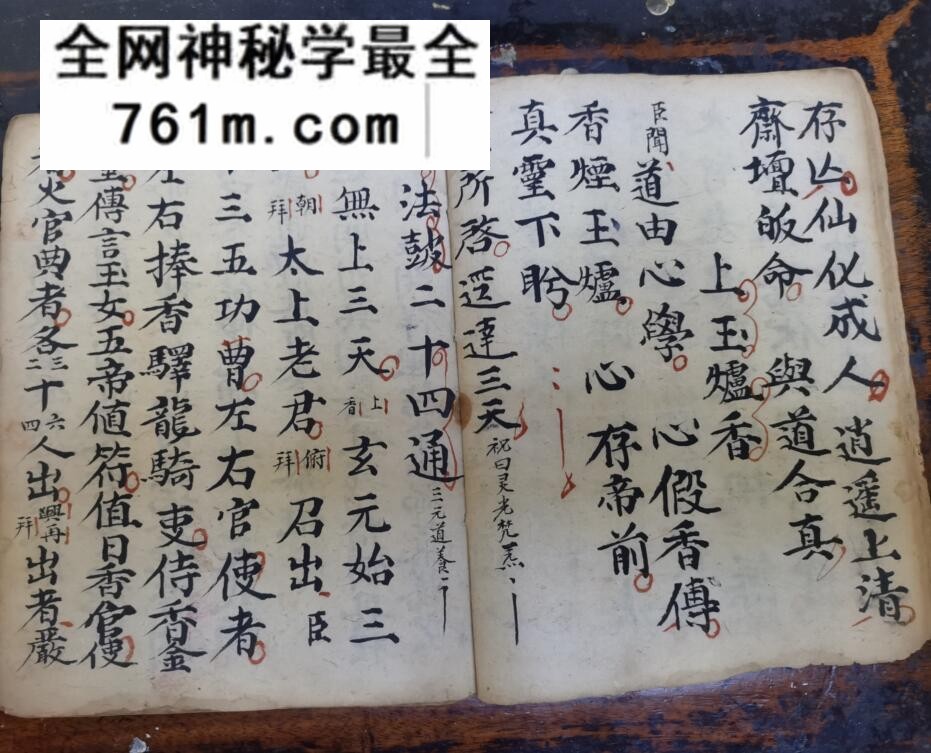 全网神秘学最全
761m.com
存亾仙化成人 逍遥上清
齋壇皈命 與道合真
上玉爐香
臣聞道由心學 心假香傳
香煙玉爐 心存帝前
真靈下盻
所啓逕達三天 祝曰灵光梵炁
法鼓二十四通 三元道養
無上三天上香玄元始三
朝拜太上老君俯拜召出臣
三五功曹左右官使者
左右捧香驛龍騎吏侍香金
傳言玉女五帝值符值日香官使
火官典者各三二十六四人出興再拜出者嚴